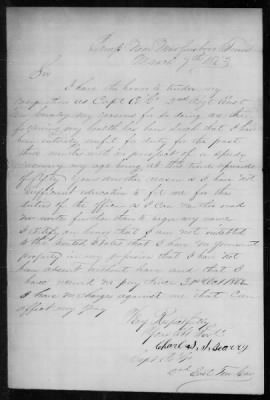 Camp Near Murfreesboro Tenn
March 7th 1863
Sir
I have the honor to tender my
resignation as Capt Co 2nd Regt East
Tenn Cavalry my reasons for so doing are the
following my health has been such that I have
been entirely unfit for duty for the past
three months with no prospect of a speedy
recovery my age being at this time upwards
of fifty another reason is I have not
sufficient education to fit me for the
duties of the office as I can neither read
nor write further than to sign my name
I certify on honor that I am not indebted
to the United States that I have no government
property in my possession that I have not
been absent without leave and that I
have received no pay since 31st Oct 1862
I have no charges against me that can
affect my pay
Very Respectfully
Your Obt Servt
Charles
Capt Co
2nd East Ten Cav